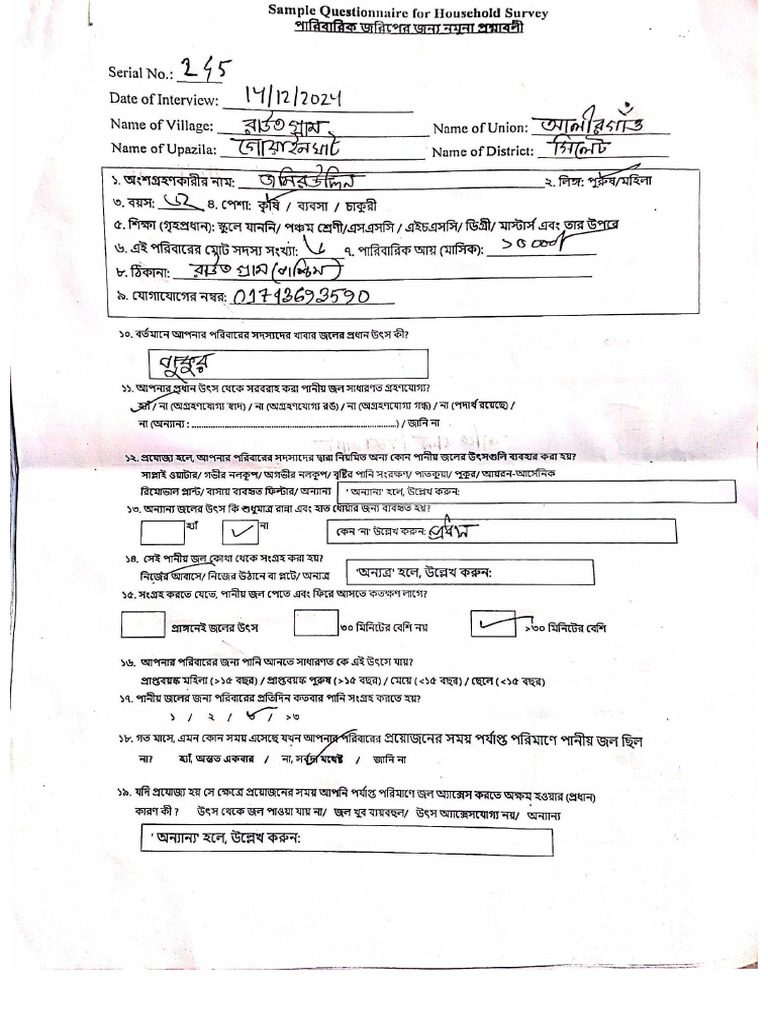 Sample Questionnaire for Household Survey
পারিবারিক জরিপের জন্য নমুনা প্রশ্নাবলী
Serial No.: 245
Date of Interview: 14/12/2024
Name of Village: রাউত গ্রাম Name of Union: আলীরগাঁও
Name of Upazila: গোয়াইনঘাট Name of District: সিলেট
১. অংশগ্রহণকারীর নাম: ২. লিঙ্গ: পুরুষ/মহিলা
৩. বয়স: ৪. পেশা: কৃষি / ব্যবসা / চাকুরী
৫. শিক্ষা (গৃহপ্রধান): স্কুলে যাননি/ পঞ্চম শ্রেণী/এসএসসি / এইচএসসি/ ডিগ্রী/ মাস্টার্স এবং তার উপরে
৬. এই পরিবারের মোট সদস্য সংখ্যা: ৭. পারিবারিক আয় (মাসিক):
৮. ঠিকানা: রাউত গ্রাম (পশ্চিম)
৯. যোগাযোগের নম্বর: 01743693590
১০. বর্তমানে আপনার পরিবারের সদস্যদের খাবার জলের প্রধান উৎস কী?
পুকুর
১১. আপনার প্রধান উৎস থেকে সরবরাহ করা পানীয় জল সাধারণত গ্রহণযোগ্য?
হ্যাঁ / না (অগ্রহণযোগ্য স্বাদ) / না (অগ্রহণযোগ্য রঙ) / না (অগ্রহণযোগ্য গন্ধ) / না (পদার্থ রয়েছে) /
না (অন্যান্য : ..........................................................) / জানি না
১২. প্রযোজ্য হলে, আপনার পরিবারের সদস্যদের দ্বারা নিয়মিত অন্য কোন পানীয় জলের উৎসগুলি ব্যবহার করা হয়?
সাপ্লাই ওয়াটার/ গভীর নলকূপ/ অগভীর নলকূপ/ বৃষ্টির পানি সংরক্ষণ/ পাতকুয়া/ পুকুর/ আয়রন-আর্সেনিক
রিমোভাল প্লান্ট/ বাসায় ব্যবহৃত ফিল্টার/ অন্যান্য ' অন্যান্য' হলে, উল্লেখ করুন:
১৩. অন্যান্য জলের উৎস কি শুধুমাত্র রান্না এবং হাত ধোয়ার জন্য ব্যবহৃত হয়?
হ্যাঁ ✓ না কেন 'না' উল্লেখ করুন:
১৪. সেই পানীয় জল কোথা থেকে সংগ্রহ করা হয়?
নিজের আবাসে/ নিজের উঠানে বা প্লটে/ অন্যত্র 'অন্যত্র' হলে, উল্লেখ করুন:
১৫. সংগ্রহ করতে যেতে, পানীয় জল পেতে এবং ফিরে আসতে কতক্ষণ লাগে?
প্রাঙ্গনেই জলের উৎস ৩০ মিনিটের বেশি নয় ✓ >৩০ মিনিটের বেশি
১৬. আপনার পরিবারের জন্য পানি আনতে সাধারণত কে এই উৎসে যায়?
প্রাপ্তবয়স্ক মহিলা (>১৫ বছর) / প্রাপ্তবয়স্ক পুরুষ (>১৫ বছর) / মেয়ে (<১৫ বছর) / ছেলে (<১৫ বছর)
১৭. পানীয় জলের জন্য পরিবারের প্রতিদিন কতবার পানি সংগ্রহ করতে হয়?
১ / ২ / ৩ / >৩
১৮. গত মাসে, এমন কোন সময় এসেছে যখন আপনার পরিবারের প্রয়োজনের সময় পর্যাপ্ত পরিমাণে পানীয় জল ছিল
না? হ্যাঁ, অন্তত একবার / না, সর্বদা যথেষ্ট / জানি না
১৯. যদি প্রযোজ্য হয় সে ক্ষেত্রে প্রয়োজনের সময় আপনি পর্যাপ্ত পরিমাণে জল অ্যাক্সেস করতে অক্ষম হওয়ার (প্রধান)
কারণ কী ? উৎস থেকে জল পাওয়া যায় না/ জল খুব ব্যয়বহুল/ উৎস অ্যাক্সেসযোগ্য নয়/ অন্যান্য
' অন্যান্য' হলে, উল্লেখ করুন: